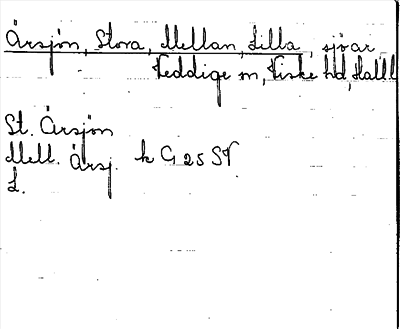 Årsjön, Stora, Mellan, Lilla, sjöar
Veddige sn, Viske hd, Hall
St. Årsjön
Mell. Årsj. k G 25 SV
L.